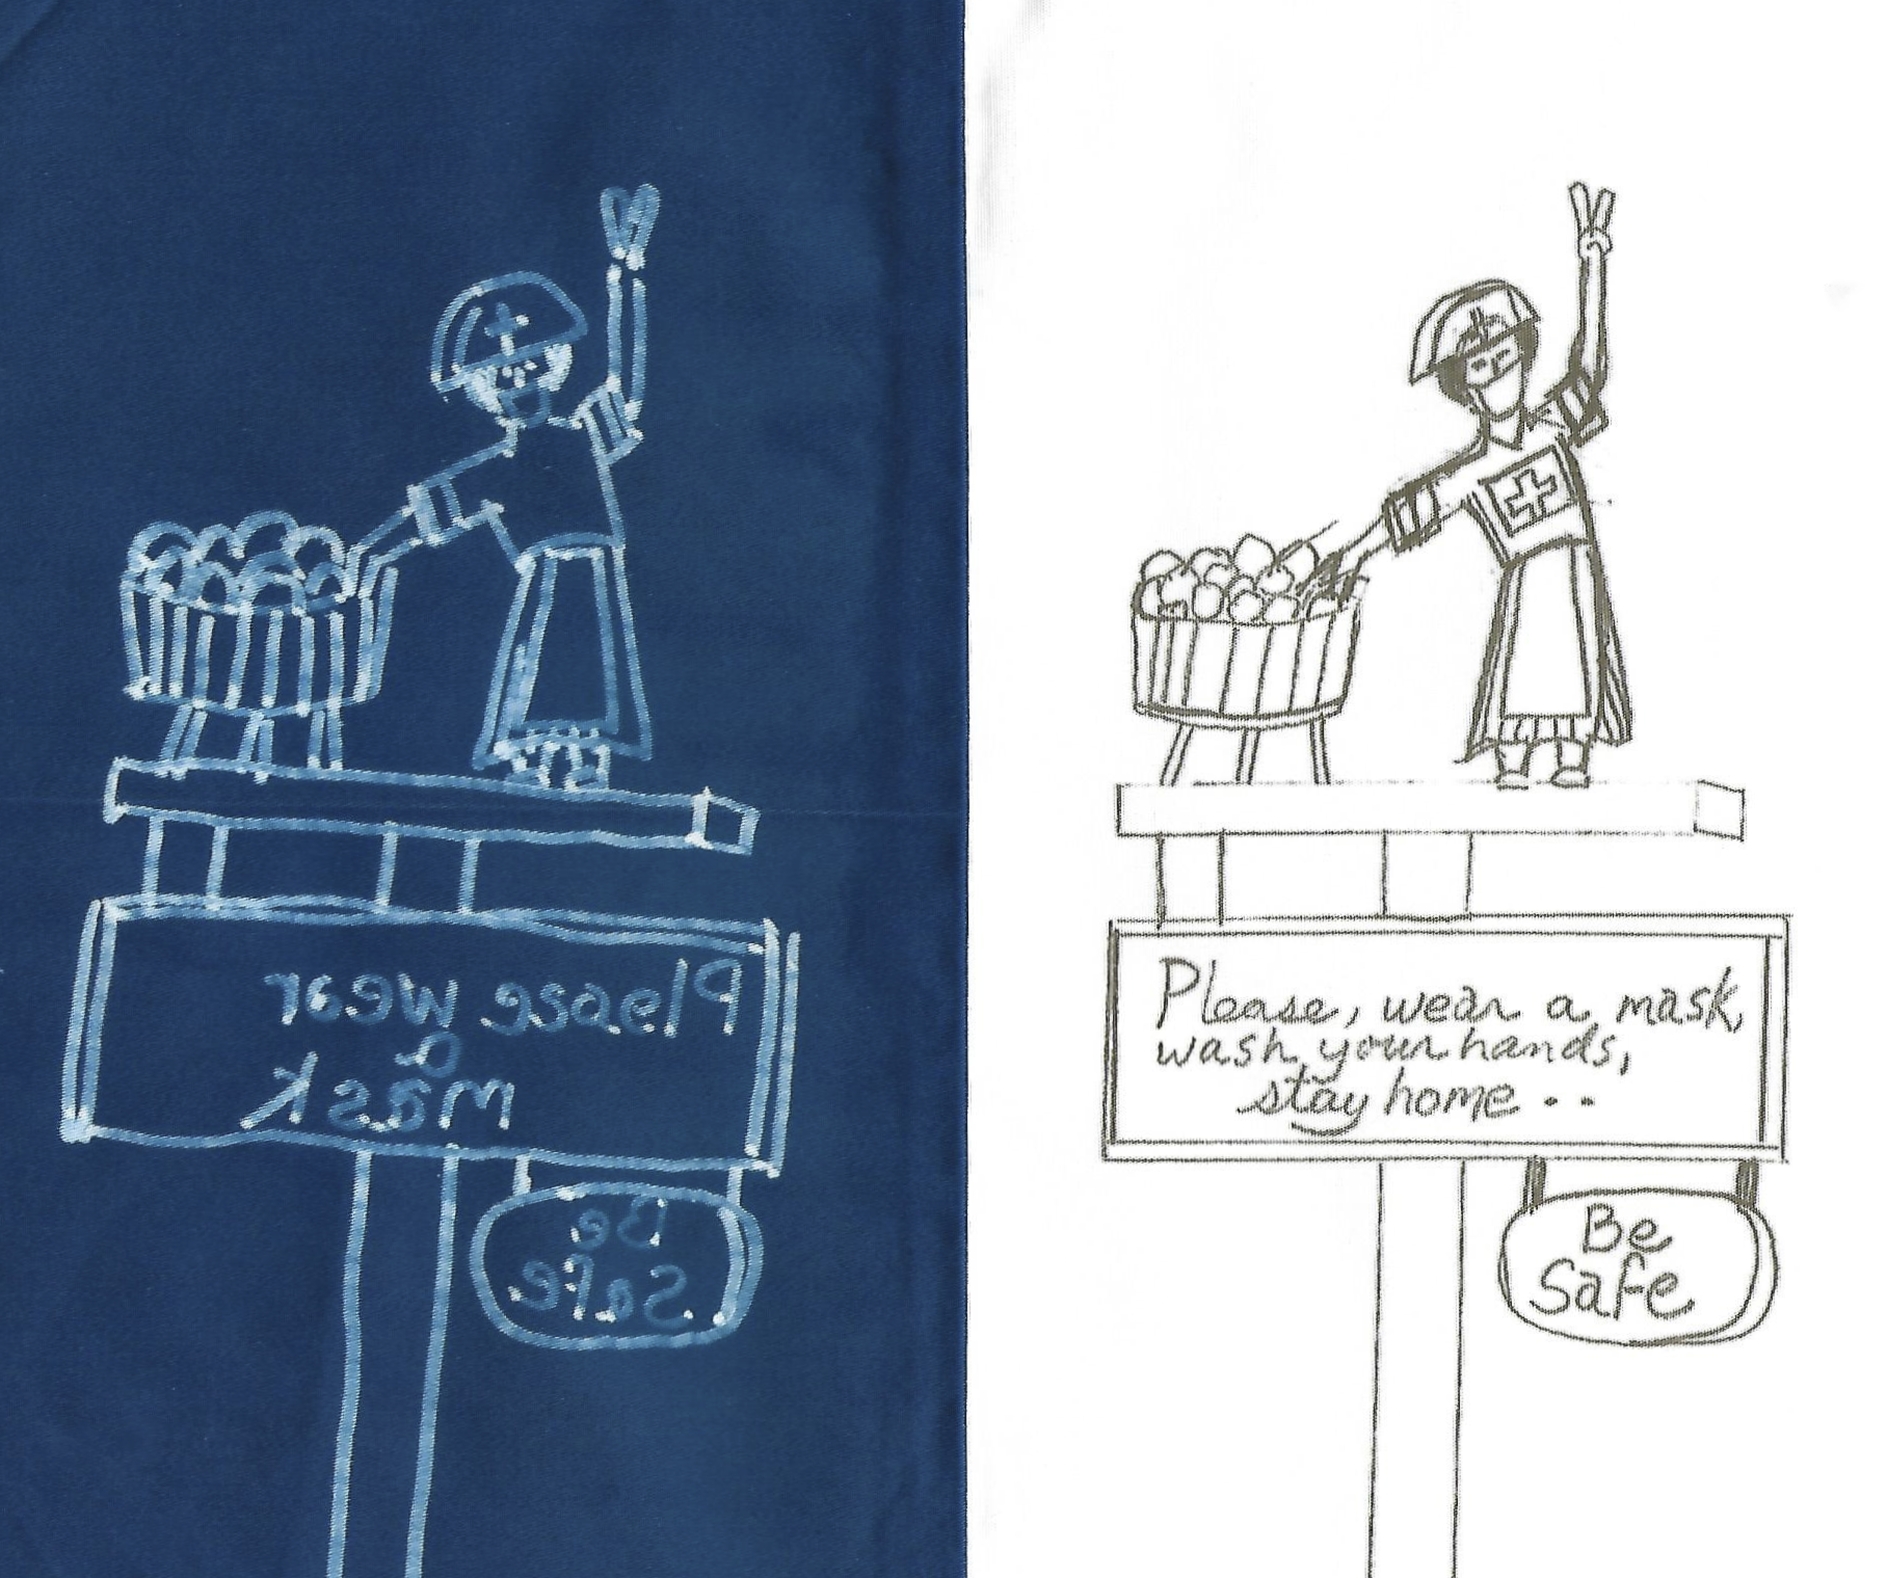 Please wear
a
mask
Be
Safe
Please, wear a mask,
wash your hands,
stay home ..
Be
Safe